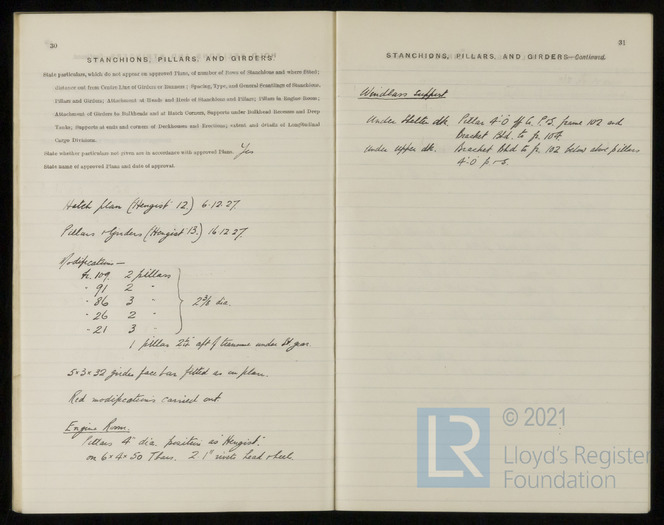 30
STANCHIONS, PILLARS, AND GIRDERS.
State particulars, which do not appear on approved Plans, of number of Rows of Stanchions and where fitted;
distance out from Centre Line of Girders or Stanchions; Spacing, Type, and General Scantlings of Stanchions,
Pillars and Girders; Attachment of Heads and Heels of Stanchions and Pillars; Pillars in Engine Room;
Attachment of Girders to Bulkheads and at Hatch Corners, Supports under Bulkhead Recesses and Deep
Tanks; Supports at ends and corners of Deckhouses and Erections; extent and details of Longitudinal
Cargo Divisions.
State whether particulars not given are in accordance with approved Plans. Yes
State name of approved Plans and date of approval.
Hatch plan (Hengist 12) 6.12.27.
Pillars & Girders (Hengist 13.) 16.12.27.
Modification —
fr. 109. 2 pillars
" 91 2 "
" 86 3 "
" 26 2 "
" 21 3 "
2 3/8 dia.
1 pillar 2 1/4" aft of transom under St gear.
5 x 3 x 32 girder face bar fitted as on plan.
Red modifications carried out
Engine Room.
Pillars 4" dia. position as "Hengist".
on 6 x 4 x 50 Tbars. 2 1" rivets head & heel
31
STANCHIONS, PILLARS, AND GIRDERS—Continued.
Windlass support
Under Shelter dk. Pillar 4'.0 off C. P.S. frame 102 and
Bracket Bhd. to fr. 104.
Under upper dk. Bracket Bhd to fr. 102 below above pillars
4'.0 p & S.
LR
© 2021
Lloyd's Register
Foundation